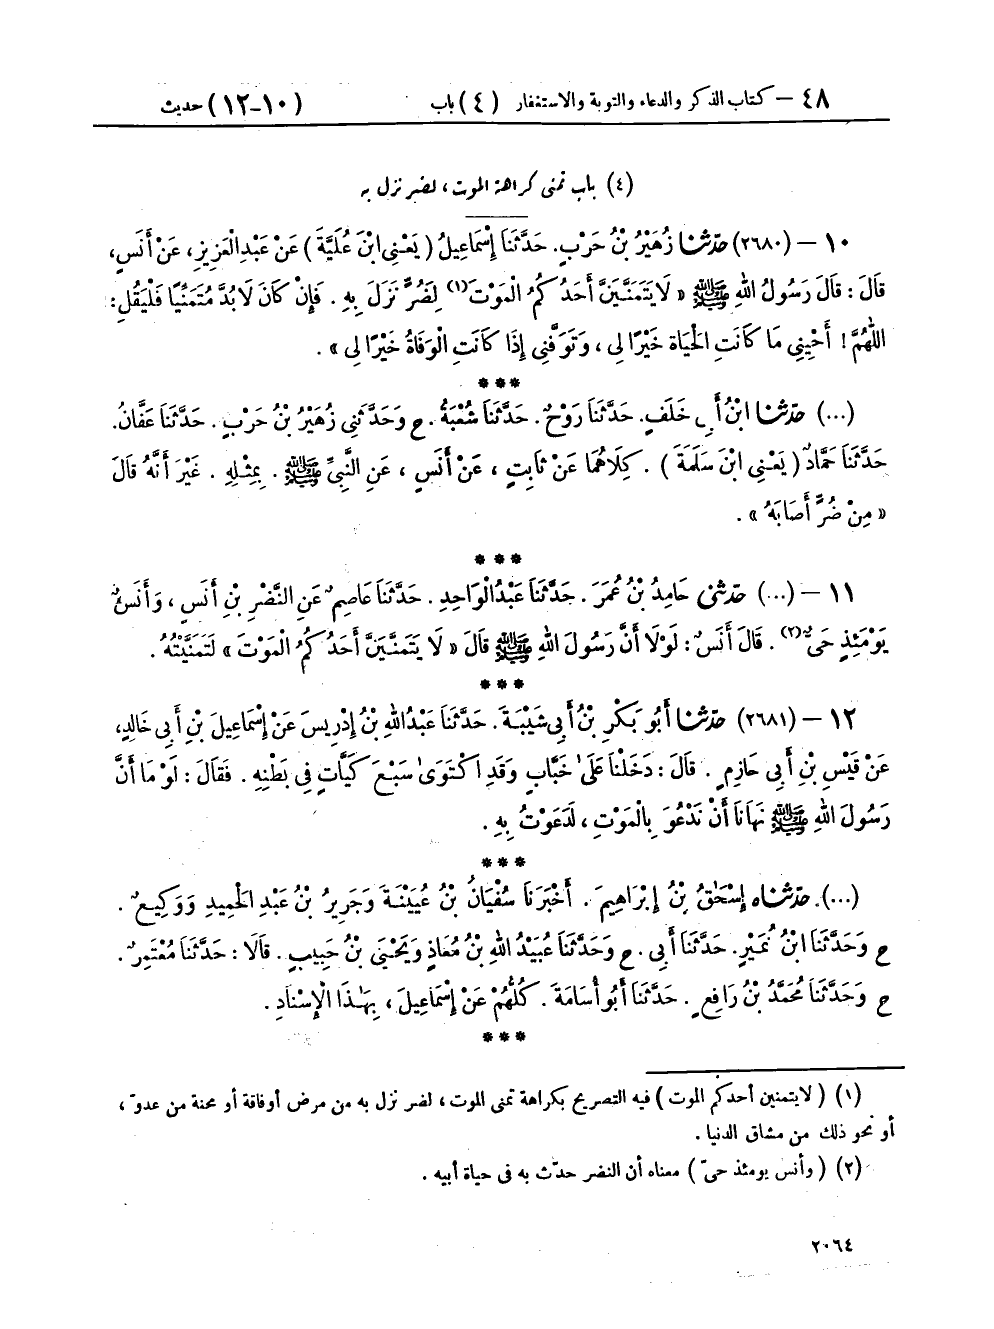 ٤٨ – كتاب الذكر والدعاء والتوبة والاستغفار (٤) باب (١٠-١٢) حديث
(٤) باب تمنى كراهة الموت، لضر نزل به
١٠ – (٢٦٨٠) حدّثنا زُهَيْرُ بْنُ حَرْبٍ. حَدَّثَنَا إِسْمَاعِيلُ (يَعْنِى ابْنَ عُلَيَّةَ) عَنْ عَبْدِ الْعَزِيزِ، عَنْ أَنَسٍ،
قَالَ: قَالَ رَسُولُ اللهِ ﷺ « لَا يَتَمَنَّيَنَّ أَحَدُكُمُ الْمَوْتَ(١) لِضُرٍّ نَزَلَ بِهِ. فَإِنْ كَانَ لَابُدَّ مُتَمَنِّيًا فَلْيَقُلِ:
اللّٰهُمَّ! أَحْيِنِى مَا كَانَتِ الْحَيَاةُ خَيْرًا لِى، وَتَوَفَّنِى إِذَا كَانَتِ الْوَفَاةُ خَيْرًا لِى ».
***
(...) حدّثنا ابْنُ أَبِى خَلَفٍ. حَدَّثَنَا رَوْحٌ. حَدَّثَنَا شُعْبَةُ. ح وَحَدَّثَنِى زُهَيْرُ بْنُ حَرْبٍ. حَدَّثَنَا عَفَّانُ.
حَدَّثَنَا حَمَّادٌ (يَعْنِى ابْنَ سَلَمَةَ). كِلَاهُمَا عَنْ ثَابِتٍ، عَنْ أَنَسٍ، عَنِ النَّبِىِّ ﷺ. بِمِثْلِهِ. غَيْرَ أَنَّهُ قَالَ
« مِنْ ضُرٍّ أَصَابَهُ ».
***
١١ – (...) حدّثنى حَامِدُ بْنُ عُمَرَ. حَدَّثَنَا عَبْدُ الْوَاحِدِ. حَدَّثَنَا عَاصِمٌ عَنِ النَّضْرِ بْنِ أَنَسٍ، وَأَنَسٌ
يَوْمَئِذٍ حَىٌّ(٢). قَالَ أَنَسٌ: لَوْلَا أَنَّ رَسُولَ اللهِ ﷺ قَالَ « لَا يَتَمَنَّيَنَّ أَحَدُكُمُ الْمَوْتَ » لَتَمَنَّيْتُهُ.
***
١٢ – (٢٦٨١) حدّثنا أَبُو بَكْرِ بْنُ أَبِى شَيْبَةَ. حَدَّثَنَا عَبْدُ اللهِ بْنُ إِدْرِيسَ عَنْ إِسْمَاعِيلَ بْنِ أَبِى خَالِدٍ،
عَنْ قَيْسِ بْنِ أَبِى حَازِمٍ. قَالَ: دَخَلْنَا عَلَىٰ خَبَّابٍ وَقَدِ اكْتَوَىٰ سَبْعَ كَيَّاتٍ فِى بَطْنِهِ. فَقَالَ: لَوْ مَا أَنَّ
رَسُولَ اللهِ ﷺ نَهَانَا أَنْ نَدْعُوَ بِالْمَوْتِ، لَدَعَوْتُ بِهِ.
***
(...) حدّثناه إِسْحَٰقُ بْنُ إِبْرَاهِيمَ. أَخْبَرَنَا سُفْيَانُ بْنُ عُيَيْنَةَ وَجَرِيرُ بْنُ عَبْدِ الْحَمِيدِ وَوَكِيعٌ.
ح وَحَدَّثَنَا ابْنُ نُمَيْرٍ. حَدَّثَنَا أَبِى. ح وَحَدَّثَنَا عُبَيْدُ اللهِ بْنُ مُعَاذٍ وَيَحْيَىٰ بْنُ حَبِيبٍ. قَالَا: حَدَّثَنَا مُعْتَمِرٌ.
ح وَحَدَّثَنَا مُحَمَّدُ بْنُ رَافِعٍ. حَدَّثَنَا أَبُو أُسَامَةَ. كُلُّهُمْ عَنْ إِسْمَاعِيلَ، بِهَٰذَا الْإِسْنَادِ.
***
(١) (لا يتمنين أحدكم الموت) فيه التصريح بكراهة تمنى الموت، لضر نزل به من مرض أو فاقة أو محنة من عدوّ،
أو نحو ذلك من مشاق الدنيا.
(٢) (وأنس يومئذ حىّ) معناه أن النضر حدّث به فى حياة أبيه.
٢٠٦٤